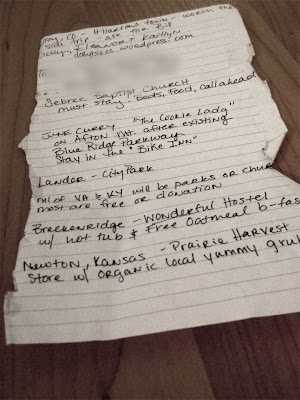 CO - Hilltown - worth the
side trip - ask for Bill
Eleanor, Kaitlyn
.wordpress.com
To
Sebree Baptist Church
must stay - beds, food, call ahead
June Curry, "The Cookie Lady"
on Afton Mt. after exiting
Blue Ridge Parkway
Stay in the "Bike Inn"
Lander - City Park
All of VA & KY will be parks or chur
most are free or donation
Breckenridge - Wonderful Hostel
w/ hot tub & Free Oatmeal b-fas
Newton, Kansas - Prairie Harvest
Store w/ organic local yummy grub